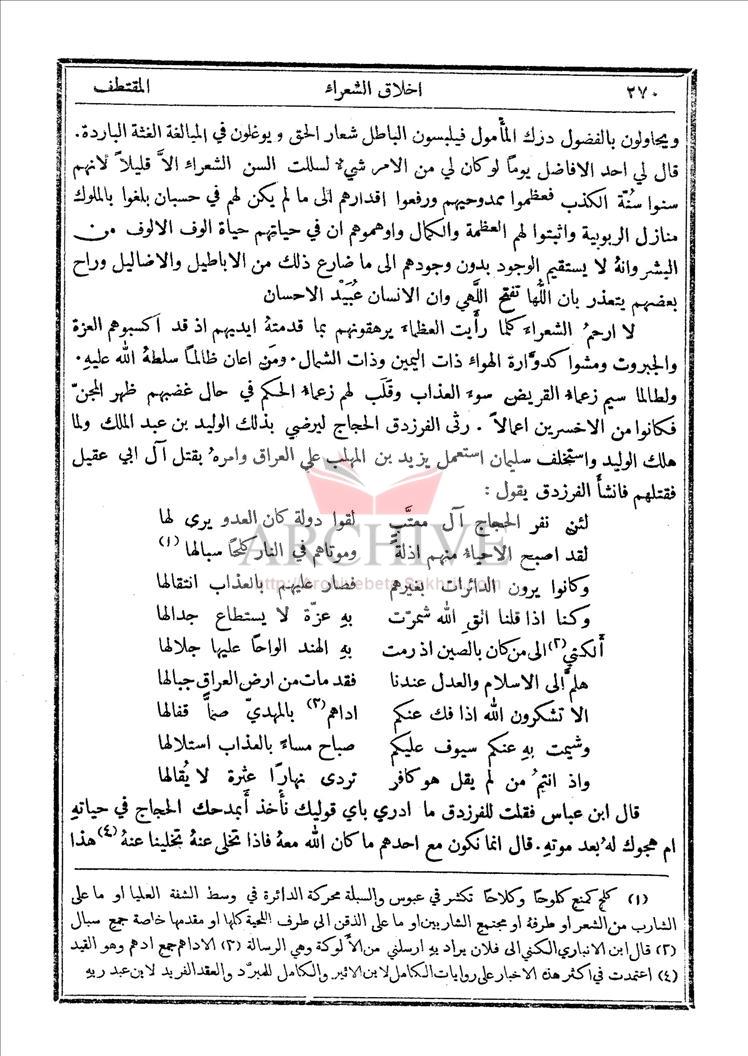 ٢٧٠ اخلاق الشعراء المقتطف
ويحاولون بالفضول درك المأمول فيلبسون الباطل شعار الحق ويوغلون في المبالغة الغثة الباردة.
قال لي احد الافاضل يوماً لو كان لي من الامر شيءٌ لسللت السن الشعراء الاَّ قليلاً لانهم
سنوا سُنَّة الكذب فعظموا ممدوحيهم ورفعوا اقدارهم الى ما لم يكن لهم في حسبان بلغوا بالملوك
منازل الربوبية واثبتوا لهم العظمة والكمال واوهموهم ان في حياتهم حياة الوف الالوف من
البشر وانهُ لا يستقيم الوجود بدون وجودهم الى ما ضارع ذلك من الاباطيل والاضاليل وراح
بعضهم يتعذر بان اللُّها تفتح اللَّهي وان الانسان عُبَيْد الاحسان
لا ارحمُ الشعراءَ كلما رأَيت العظماءَ يرهقونهم بما قدمتهُ ايديهم اذ قد اكسبوهم العزة
والجبروت ومشوا كدوَّارة الهواء ذات اليمين وذات الشمال. ومَن اعان ظالماً سلطهُ الله عليهِ.
ولطالما سيم زعماءُ القريض سوءَ العذاب وقلَب لهم زعماءُ الحكم في حال غضبهم ظهر المجنّ
فكانوا من الاخسرين اعمالاً. رثى الفرزدق الحجاج ليرضي بذلك الوليد بن عبد الملك ولما
هلك الوليد واستخلف سليمان استعمل يزيد بن المهلب على العراق وامرهُ بقتل آل ابي عقيل
فقتلهم فانشأَ الفرزدق يقول:
لئن نفر الحجاج آل معتّبٍ لقوا دولة كان العدو يرى لها
لقد اصبح الاحياءُ منهم اذلةً وموتاهم في النار كلحًا سبالها (١)
وكانوا يرون الدائرات بغيرهم فصار عليهم بالعذاب انتقالها
وكنا اذا قلنا اتقِ الله شمرّت بهِ عزّة لا يستطاع جدالها
أَلكني (٢) الى من كان بالصين اذ رمت بهِ الهند الواحًا عليها جلالها
هلمَّ الى الاسلام والعدل عندنا فقد مات من ارض العراق خبالها
الا تشكرون الله اذا فك عنكم اداهم (٣) بالمهديّ صمًّا قفالها
وشيمت بهِ عنكم سيوف عليكم صباح مساءَ بالعذاب استلالها
واذ انتمُ من لم يقل هو كافر تردى نهارًا عثرة لا يُقالها
قال ابن عباس فقلت للفرزدق ما ادري باي قوليك نأخذ أَبمدحك الحجاج في حياتهِ
ام هجوك لهُ بعد موتهِ. قال انما نكون مع احدهم ما كان الله معهُ فاذا تخلى عنهُ تخلينا عنهُ (٤) هذا
(١) كلح كمنع كلوحًا وكلاحًا تكشر في عبوس والسبلة محركة الدائرة في وسط الشفة العليا او ما على
الشارب من الشعر او طرفهُ او مجتمع الشاربين او ما على الذقن الى طرف اللحية كلها او مقدمها خاصة جمع سبال
(٢) قال ابن الانباري الكني الى فلان يراد بهِ ارسلني من الألوكة وهي الرسالة (٣) الاداهم جمع ادهم وهو القيد
(٤) اعتمدت في اكثر هذه الاخبار على روايات الكامل لابن الاثير والكامل للمبرّد والعقد الفريد لابن عبد ربهِ
ARCHIVE
http://Archivebeta.Sakhrit.com